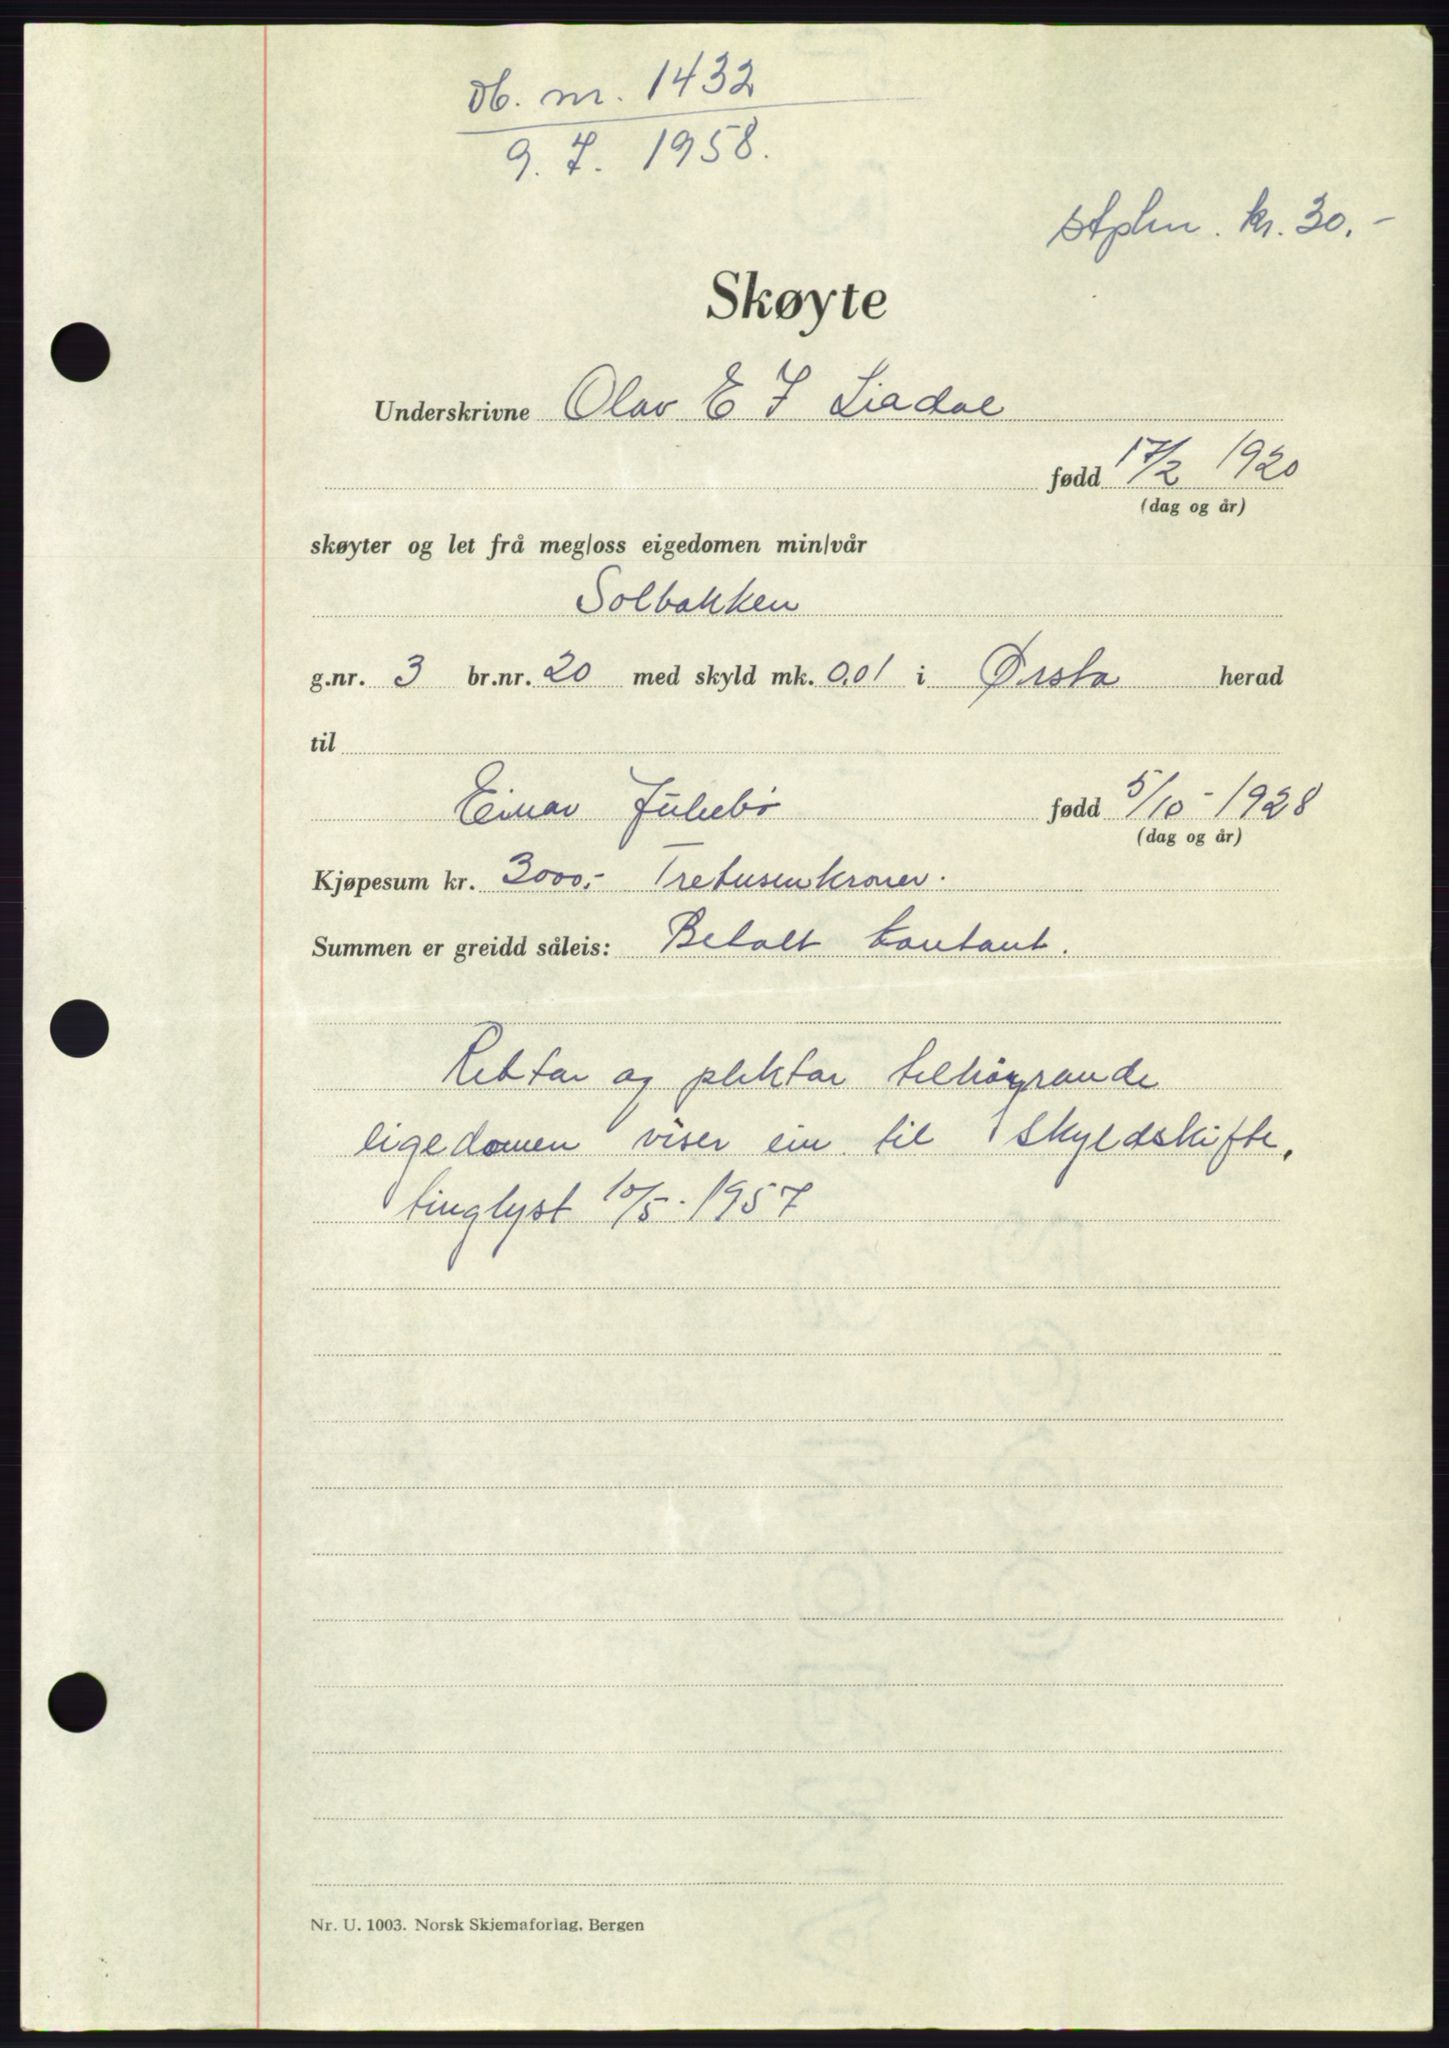 db. nr. 1432
9. 7. 1958.
stplm. kr. 30.-
Skøyte
Underskrivne Olav E J Liadal
fødd 17/2 1920
(dag og år)
skøyter og let frå meg/oss eigedomen min/vår
Solbakken
g.nr. 3 br.nr. 20 med skyld mk. 0,01 i Ørsta herad
til
Einar Julebø fødd 5/10 - 1928
(dag og år)
Kjøpesum kr. 3000,- Tretusenkroner.
Summen er greidd såleis: Betalt kontant.
Rettar og pliktar tilhøyrande
eigedomen viser ein til skyldskifte,
tinglyst 10/5. 1957
Nr. U. 1003. Norsk Skjemaforlag. Bergen